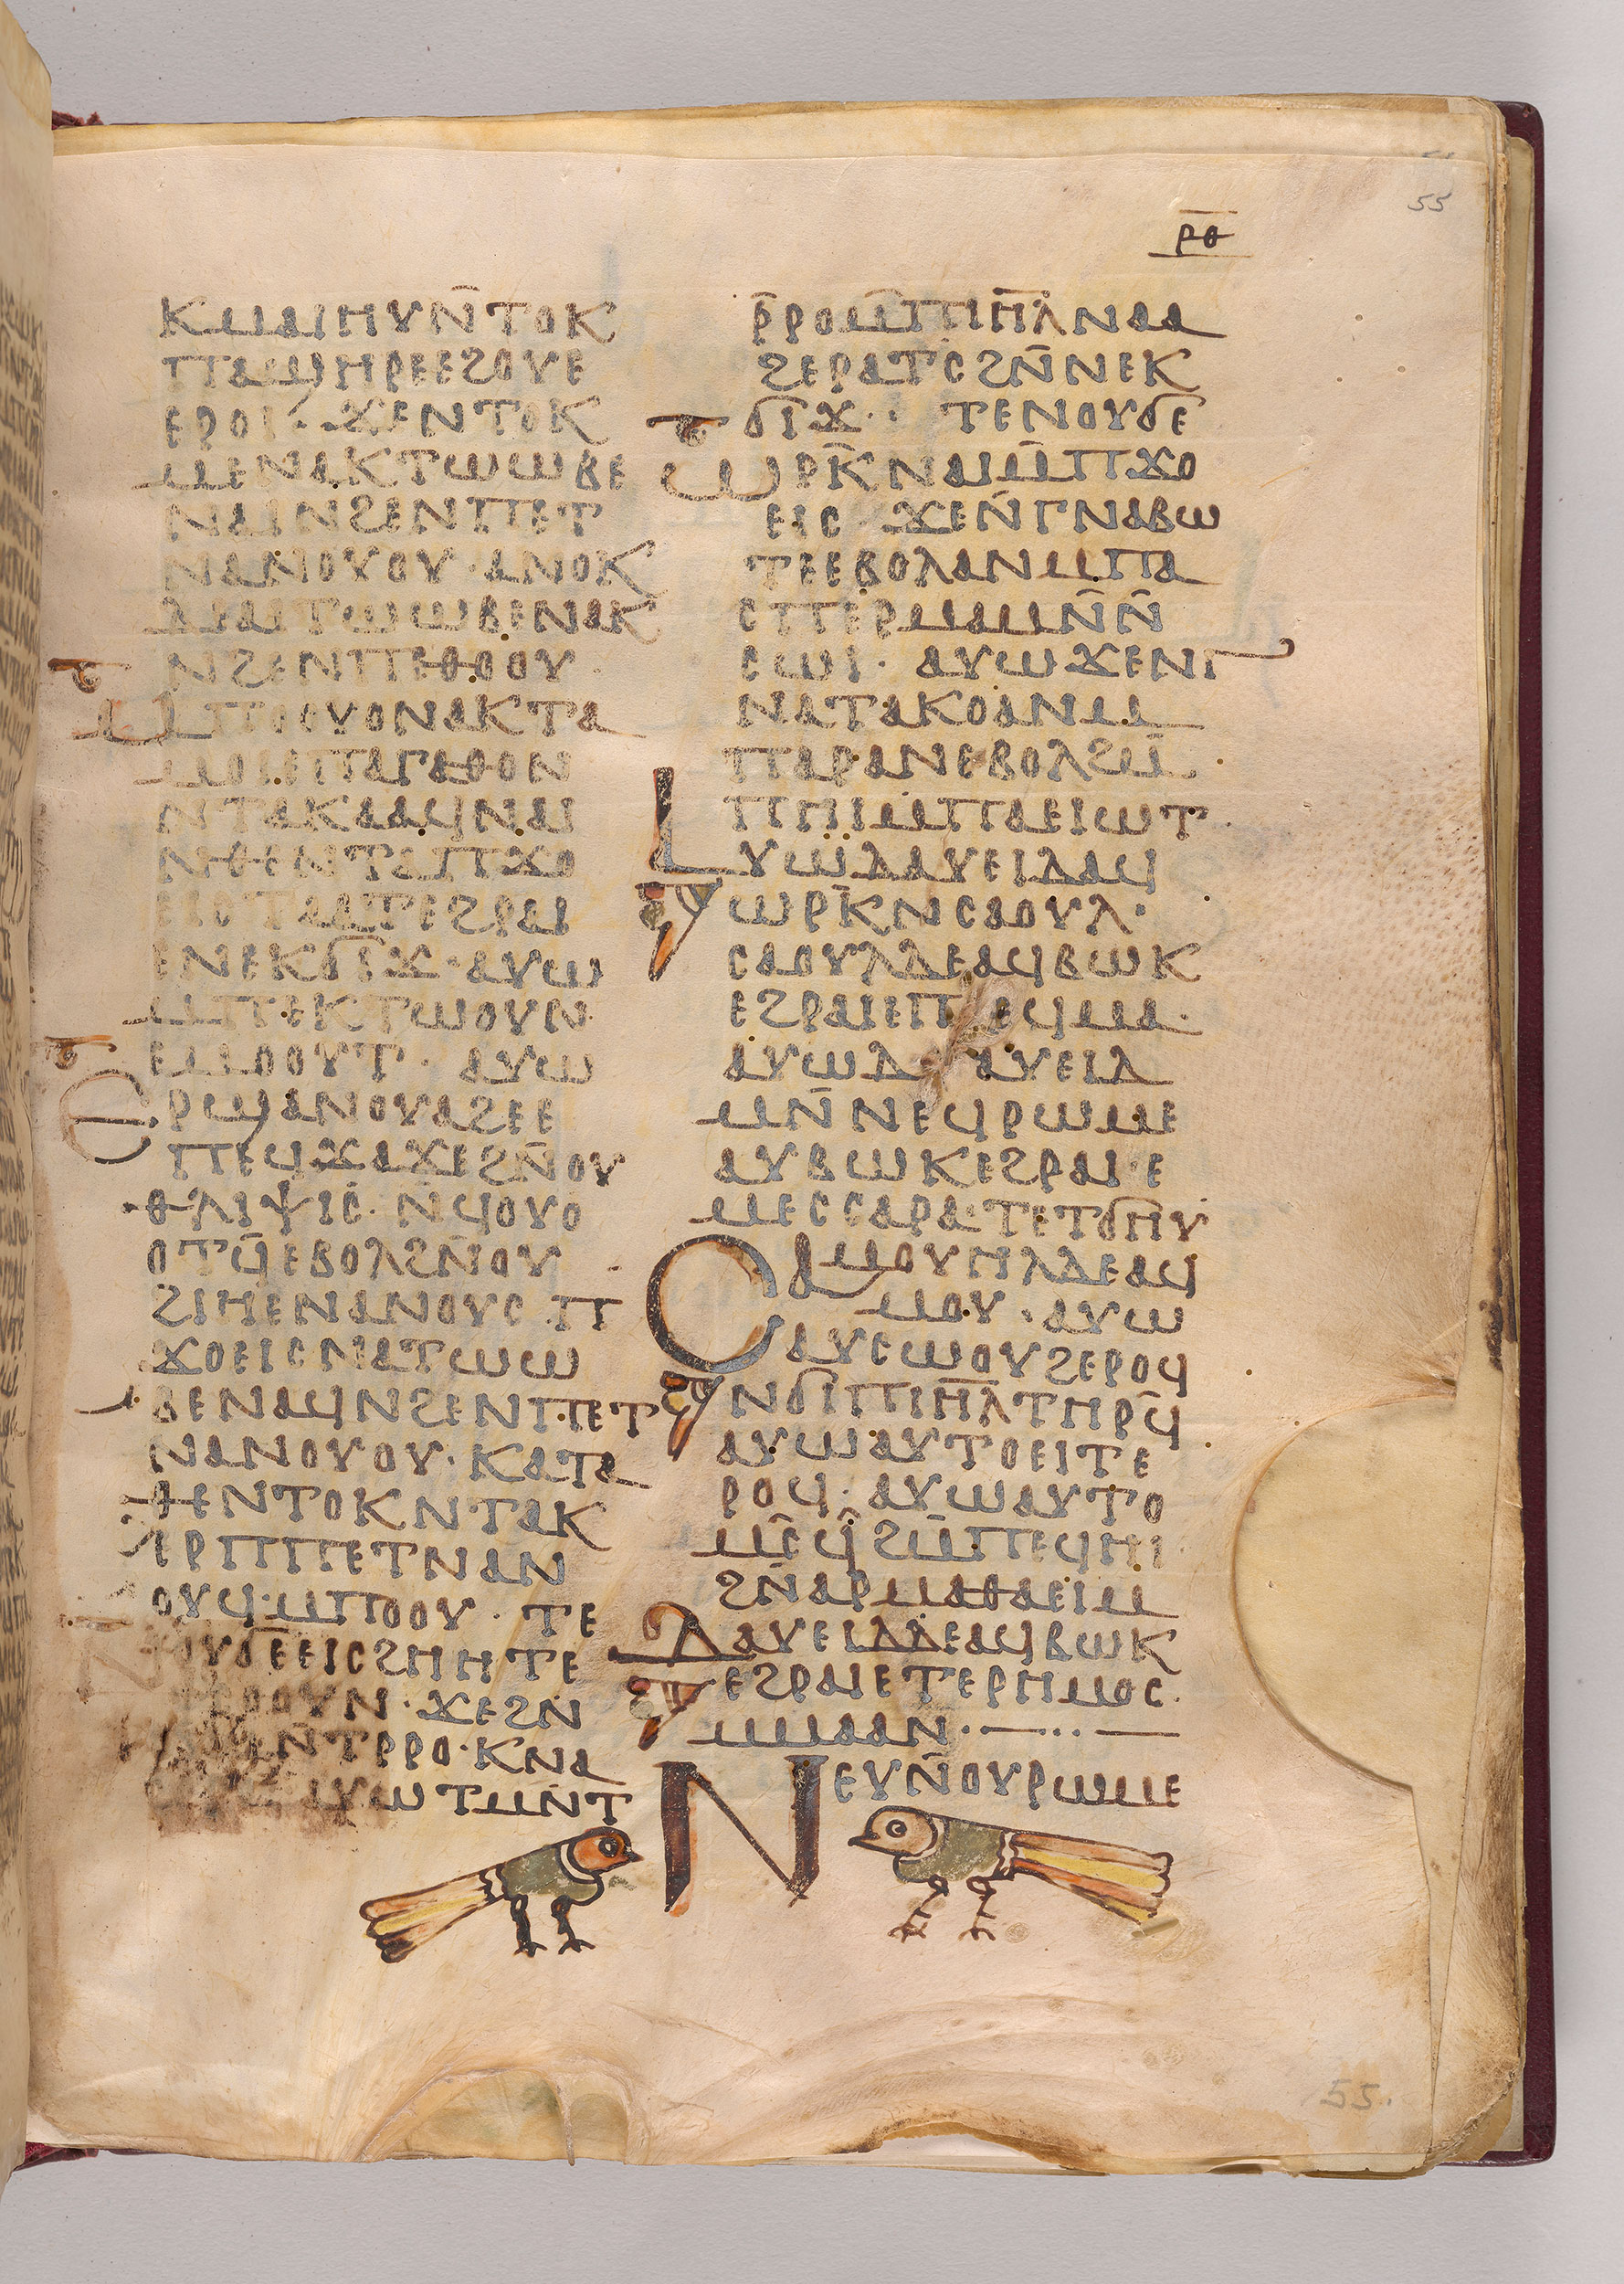 55
ⲣ̅ⲑ̅
ⲕⲙⲁⲓⲏⲩⲛ̄ⲧⲟⲕ
ⲡⲁϣⲏⲣⲉⲉϩⲟⲩⲉ
ⲉⲣⲟⲓ· ϫⲉⲛⲧⲟⲕ
ⲙⲉⲛⲁⲕⲧⲱⲱⲃⲉ
ⲛⲁⲓⲛϩⲉⲛⲡⲉⲧ
ⲛⲁⲛⲟⲩⲟⲩ· ⲁⲛⲟⲕ
ⲇⲉⲁⲓⲧⲱⲱⲃⲉⲛⲁⲕ
ⲛϩⲉⲛⲡⲉⲑⲟⲟⲩ·
ⲙⲡⲟⲟⲩⲟⲛⲁⲕⲧⲁ
ⲙⲟⲓⲉⲡⲁⲅⲁⲑⲟⲛ
ⲛⲧⲁⲕⲁⲁϥⲛⲁⲓ
ⲛⲑⲉⲛⲧⲁⲡϫⲟ
ⲉⲓⲥⲧⲁⲁⲧⲉϩⲣⲁⲓ
ⲉⲛⲉⲕϭⲓϫ· ⲁⲩⲱ
ⲙⲡⲉⲕⲧⲱⲟⲩⲛ
ⲉⲙⲟⲟⲩⲧ· ⲁⲩⲱ
ⲉⲣϣⲁⲛⲟⲩⲁϩⲉⲉ
ⲡⲉϥϫⲁϫⲉϩⲛ̄ⲟⲩ
ⲑⲗⲓⲯⲓⲥ· ⲛ̄ϥⲟⲩⲟ
ⲟⲧϥ̄ⲉⲃⲟⲗϩⲛ̄ⲟⲩ
ϩⲓⲏⲉⲛⲁⲛⲟⲩⲥ· ⲡ
ϫⲟⲉⲓⲥⲛⲁⲧⲱⲱ
ⲃⲉⲛⲁϥⲛϩⲉⲛⲡⲉⲧ
ⲛⲁⲛⲟⲩⲟⲩ· ⲕⲁⲧⲁ
ⲑⲉⲛⲧⲟⲕⲛⲧⲁⲕ
ⲉⲣⲡⲡⲉⲧⲛⲁⲛ
ⲟⲩϥ·ⲙⲡⲟⲟⲩ· ⲧⲉ
ⲛⲟⲩϭⲉⲉⲓⲥϩⲏⲏⲧⲉ
ϯⲥⲟⲟⲩⲛ· ϫⲉϩⲛ
ⲟⲩⲙⲛⲧⲣⲣⲟ·ⲕⲛⲁ
ⲁⲩⲱⲧⲙⲛ̄ⲧ
ⲣ̄ⲣⲟⲙ̄ⲡⲓⲏ̄ⲗⲛⲁⲁ
ϩⲉⲣⲁⲧⲥ̄ϩⲛ̄ⲛⲉⲕ
ϭⲓϫ·· ⲧⲉⲛⲟⲩϭⲉ
ⲱⲣⲕ̄ⲛⲁⲓⲙ̄ⲡϫⲟ
ⲉⲓⲥ ϫⲉⲛ̄ⲅⲛⲁⲃⲱ
ⲧⲉⲉⲃⲟⲗⲁⲛⲙⲡⲁ
ⲥⲡⲉⲣⲙⲁⲙⲛ̄ⲛ̄
ⲥⲱⲓ· ⲁⲩⲱϫⲉⲛⲅ
ⲛⲁⲧⲁⲕⲟⲁⲛⲙ
ⲡⲁⲣⲁⲛⲉⲃⲟⲗϩⲙ̄
ⲡⲏⲓⲙⲡⲁⲉⲓⲱⲧ·
ⲁⲩⲱⲇⲁⲩⲉⲓⲇⲁϥ
ⲱⲣⲕ̄ⲛⲥⲁⲟⲩⲗ·
ⲥⲁⲟⲩⲗⲇⲉⲁϥⲃⲱⲕ
ⲉϩⲣⲁⲓⲉⲡⲉϥⲙⲁ·
ⲁⲩⲱⲇⲁⲩⲉⲓⲇ
ⲙⲛ̄ⲛⲉϥⲣⲱⲙⲉ
ⲁⲩⲃⲱⲕⲉϩⲣⲁⲓ·ⲉ
ⲙⲉⲥⲥⲁⲣⲁ·ⲧⲉⲧϭⲏⲩ
ⲥⲁⲙⲟⲩⲏⲗⲇⲉⲁϥ
ⲙⲟⲩ· ⲁⲩⲱ
ⲁⲩⲥⲱⲟⲩϩⲉⲣⲟϥ
ⲛϭⲓⲡⲓⲏ̄ⲗⲧⲏⲣϥ̄
ⲁⲩⲱⲁⲩⲧⲟⲉⲓⲧⲉ
ⲣⲟϥ· ⲁⲩⲱⲁⲩⲧⲟ
ⲙⲉ̄ⲥϥ̄ϩⲙ̄ⲡⲉϥⲏⲓ
ϩⲛ̄ⲁⲣⲙⲁⲑⲁⲉⲓⲙ
ⲇⲁⲩⲉⲓⲇⲇⲉⲁϥⲃⲱⲕ
ⲉϩⲣⲁⲓⲉⲧⲉⲣⲏⲙⲟⲥ·
ⲙⲙⲁⲁⲛ·
ⲛⲉⲩⲛ̄ⲟⲩⲣⲱⲙⲉ
55.